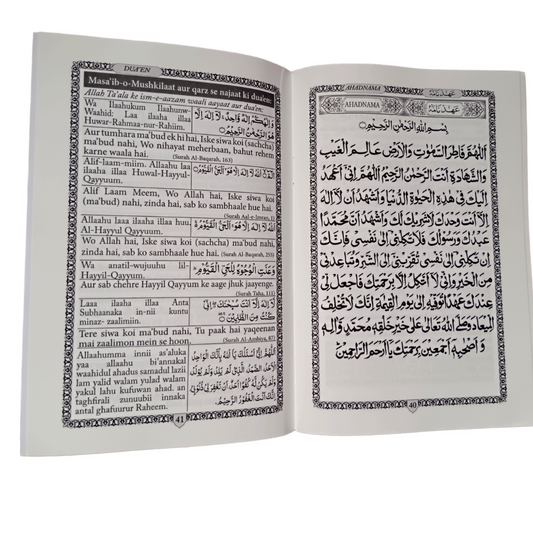 DUA'EN
Masa'ib-o-Mushkilaat aur qarz se najaat ki dua'en:
Allah Ta'ala ke ism-e-aazam waali aayaat aur dua'en:
Wa Ilaahukum Ilaahunw-
Waahid: Laa ilaaha illaa
Huwar-Rahmaa-nur-Rahiim.
وَاِلٰهُكُمْ اِلٰهٌ وَّاحِدٌ، لَآ اِلٰهَ اِلَّا
هُوَ الرَّحْمٰنُ الرَّحِيْمُ
Aur tumhara ma'bud ek hi hai, Iske siwa koi (sachcha)
ma'bud nahi, Wo nihayat meherbaan, bahut rehem
karne waala hai.
(Surah Al-Baqarah, 163)
Alif-laam-miim. Allaahu laa
ilaaha illaa Huwal-Hayyul-
Qayyuum.
الٓمّٓ اللّٰهُ لَآ اِلٰهَ اِلَّا هُوَ الْحَيُّ الْقَيُّوْمُ
Alif Laam Meem, Wo Allah hai, Iske siwa koi
(ma'bud) nahi, zinda hai, sab ko sambhaale hue hai.
(Surah Aal-e-Imran, 1)
Allaahu laaa ilaaha illaa huu,
Al-Hayyul Qayyuum.
اَللّٰهُ لَآ اِلٰهَ اِلَّا هُوَ الْحَيُّ الْقَيُّوْمُ
Wo Allah hai, Iske siwa koi (sachcha) ma'bud nahi,
zinda hai, sab ko sambhaale hue hai.
(Surah Al-Baqarah, 255)
Wa anatil-wujuuhu lil-
Hayyil- Qayyuum.
وَعَنَتِ الْوُجُوْهُ لِلْحَيِّ الْقَيُّوْمِ
Aur sab chehre Hayyil Qayyum ke aage jhuk jaayenge.
(Surah Taha, 111)
Laaa ilaaha illaa Anta
Subhaanaka in-nii kuntu
minaz- zaalimiin.
لَآ اِلٰهَ اِلَّآ اَنْتَ سُبْحٰنَكَ اِنِّيْ
كُنْتُ مِنَ الظّٰلِمِيْنَ
Tere siwa koi ma'bud nahi, Tu paak hai yaqeenan
mai zaalimon mein se hoon.
(Surah Al-Ambiya, 87)
Allaahumma innii as'aluka
yaa allaahu bi'annakal
waahidul ahadus samadul lazii
lam yalid walam yulad walam
yakul lahu kufuwan ahad. an
taghfirali zunuubii innaka
antal ghafuurur Raheem.
اَللّٰهُمَّ اِنِّيْ اَسْئَلُكَ يَا اَللّٰهُ بِاَنَّكَ الْوَاحِدُ
الْاَحَدُ الصَّمَدُ الَّذِيْ لَمْ يَلِدْ وَلَمْ يُوْلَدْ
وَلَمْ يَكُنْ لَّهٗ كُفُوًا اَحَدٌ اَنْ تَغْفِرَ لِيْ ذُنُوْبِيْ
اِنَّكَ اَنْتَ الْغَفُوْرُ الرَّحِيْمُ
41
AHADNAMA
عہد نامہ
AHADNAMA
عہد نامہ
بِسْمِ اللّٰهِ الرَّحْمٰنِ الرَّحِيْمِ
اَللّٰهُمَّ فَاطِرَ السَّمٰوٰتِ وَالْاَرْضِ عَالِمَ الْغَيْبِ
وَالشَّهَادَةِ اَنْتَ الرَّحْمٰنُ الرَّحِيْمُ اَللّٰهُمَّ اِنِّيْ اَعْهَدُ
اِلَيْكَ فِيْ هٰذِهِ الْحَيٰوةِ الدُّنْيَا وَاَشْهَدُ اَنْ لَّآ اِلٰهَ
اِلَّا اَنْتَ وَحْدَكَ لَا شَرِيْكَ لَكَ وَاَشْهَدُ اَنَّ مُحَمَّدًا
عَبْدُكَ وَرَسُوْلُكَ فَلَا تَكِلْنِيْ اِلٰى نَفْسِيْ فَاِنَّكَ
اِنْ تَكِلْنِيْ اِلٰى نَفْسِيْ تُقَرِّبْنِيْ اِلَى الشَّرِّ وَتُبَاعِدْنِيْ
مِنَ الْخَيْرِ وَاِنِّيْ لَآ اَتَّكِلُ اِلَّا بِرَحْمَتِكَ فَاجْعَلْ لِّيْ
عِنْدَكَ عَهْدًا تُوَفِّيْهِ اِلٰى يَوْمِ الْقِيٰمَةِ اِنَّكَ لَا تُخْلِفُ
الْمِيْعَادَ وَصَلَّى اللّٰهُ تَعَالٰى عَلٰى خَيْرِ خَلْقِهٖ مُحَمَّدٍ وَّاٰلِهٖ
وَاَصْحَابِهٖ اَجْمَعِيْنَ بِرَحْمَتِكَ يَا اَرْحَمَ الرَّاحِمِيْنَ
40